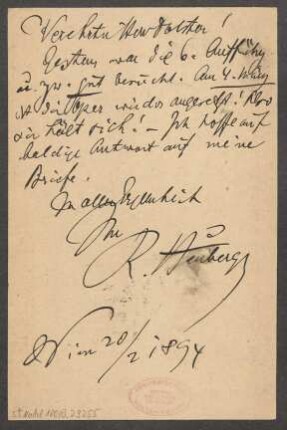 Verehrter Herr Doktor!
Gestern war die 6. Aufführg
u. zw. gut besucht. Am 4. März
ist die Oper wieder angesetzt! Also
sie hält sich! – Ich hoffe auf
baldige Antwort auf meine
Briefe.
In aller Ergebenheit
Ihr
R. Heuberger
Wien 20/2 1894